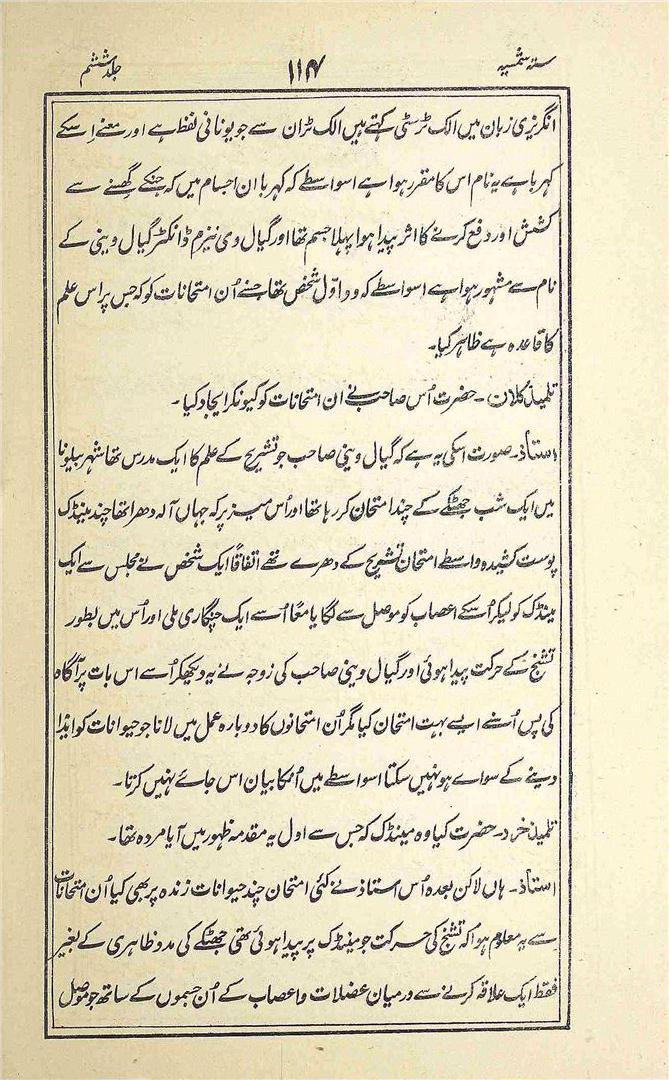 ستہ شمسیہ ۱۱۴ جلد ششم
انگریزی زبان میں الک ٹرسٹی کہتے ہیں الک ٹران سے جو یونانی لفظ ہے اور معنے اِسکے
کہربا ہے یہ نام اس کا مقرر ہوا ہے اسواسطے کہ کہربا ان اجسام میں کہ جنکے گھسنے سے
کشش اور دفع کرنے کا اثر پیدا ہوا پہلا جسم تھا اور گیال وی نیزم ڈانکٹر گیال وینی کے
نام سے مشہور ہوا ہے اسواسطے کہ وہ اوّل شخص تھا جسنے اُن امتحانات کو کہ جس پر اس علم
کا قاعدہ ہے ظاہر کیا۔
تلمیذ کلان ۔ حضرت اُس صاحب نے ان امتحانات کو کیونکر ایجاد کیا۔
استاذ۔ صورت اسکی یہ ہے کہ گیال وینی صاحب جو تشریح کے علم کا ایک مدرس تھا شہر بیلونا
میں ایک شب جھٹکے کے چند امتحان کر رہا تھا اور اُس میز پر کہ جہاں آلہ دھرا تھا چند مینڈک
پوست کشیدہ واسطے امتحان تشریح کے دھرے تھے اتفاقاً ایک شخص نے مجلس سے ایک
مینڈک کو لیکر اُسکے اعصاب کو موصل سے لگایا معًا اُسے ایک چنگاری ملی اور اُس میں بطور
تشنج کے حرکت پیدا ہوئی اور گیال وینی صاحب کی زوجہ نے یہ دیکھکر اُسے اس بات پر آگاہ
کی پس اُسنے ایسے بہت امتحان کیا مگر اُن امتحانوں کا دوبارہ عمل میں لانا جو حیوانات کو ایذا
دینے کے سواے ہو نہیں سکتا اسواسطے میں اُنکا بیان اس جائے نہیں کرتا۔
تلمیذ خرد۔ حضرت کیا وہ مینڈک کہ جس سے اول یہ مقدمہ ظہور میں آیا مردہ تھا۔
استاذ۔ ہاں لاکن بعدہ اُس استاذ نے کئی امتحان چند حیوانات زندہ پر بھی کیا اُن امتحانات
سے یہ معلوم ہوا کہ تشنج کی حرکت جو مینڈک پر پیدا ہوئی تھی جھٹکے کی مدد ظاہری کے بغیر
فقط ایک علاقہ کرنے سے درمیان عضلات و اعصاب کے اُن جسموں کے ساتھ جو موصل